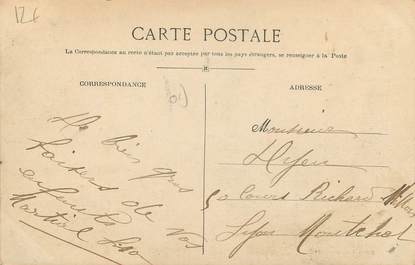 12€
CARTE POSTALE
La Correspondance au recto n'étant pas acceptée par tous les pays étrangers, se renseigner à la Poste
CORRESPONDANCE
de très gros
baisers de vos
enfants
Martial
ADRESSE
Monsieur
50 cours Richard
Lyon Montchat